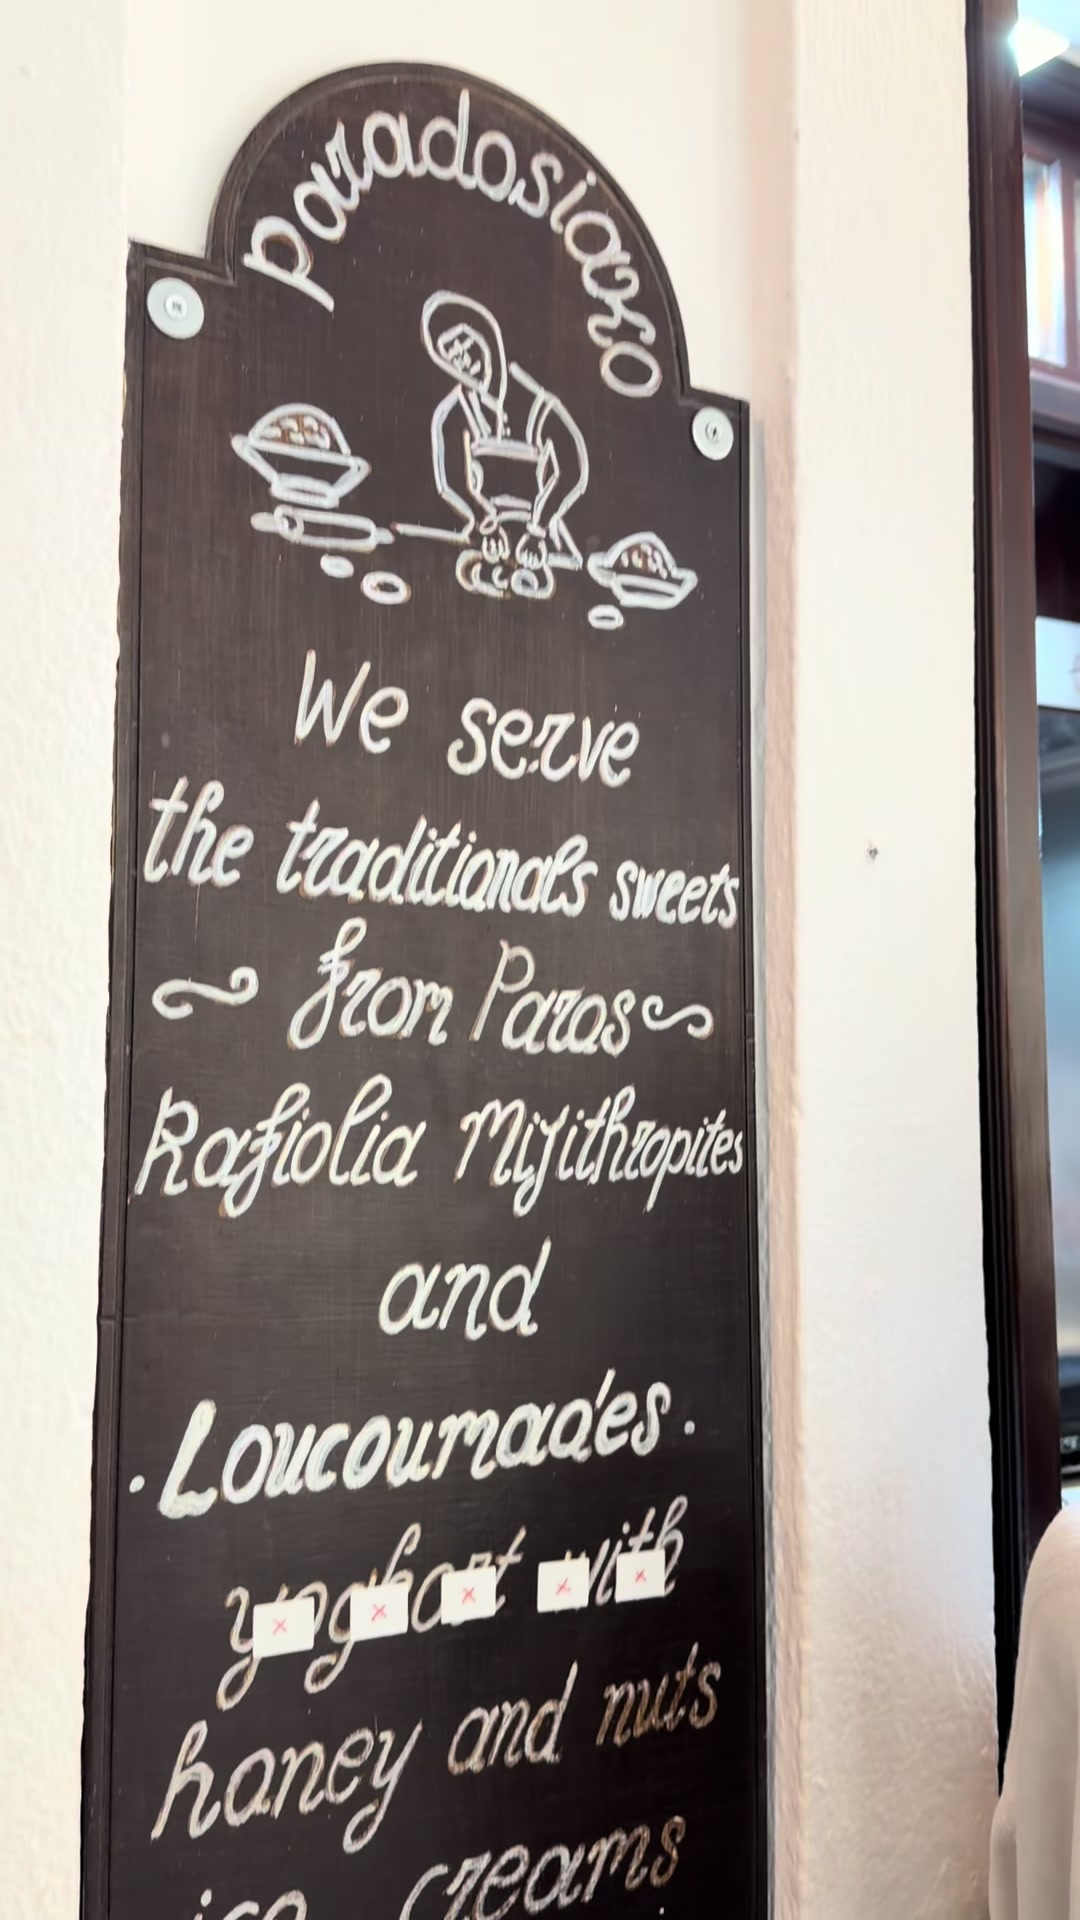 paradosiako
We serve
the traditionals sweets
from Paros
Rafiolia Mijithropites
and
· Loucoumades ·
yoghort with
honey and nuts
ice creams